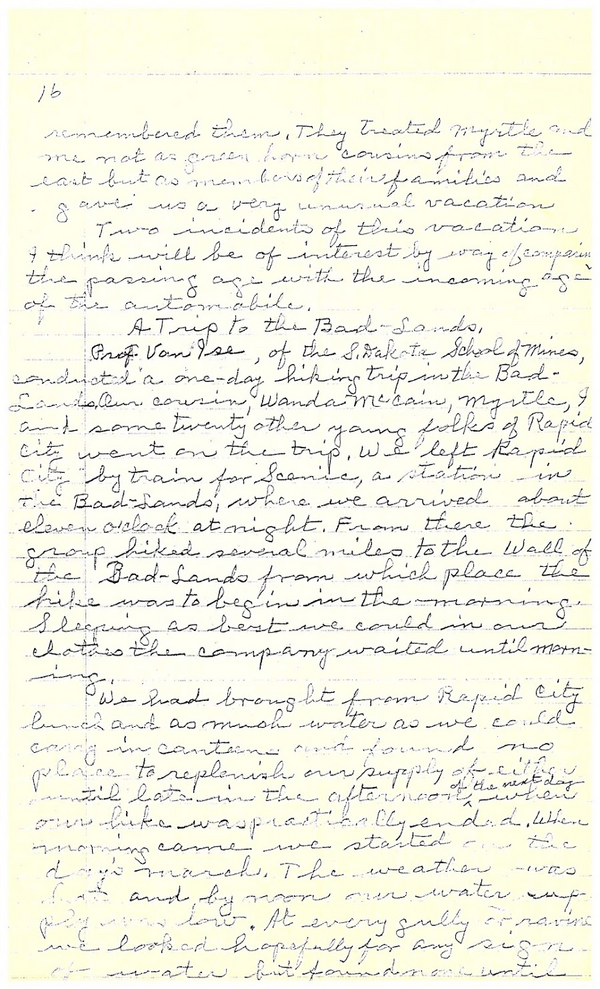 16
remembered them. They treated Myrtle and
me not as green horn cousins from the
east but as members of their families and
gave us a very unusual vacation
Two incidents of this vacation
I think will be of interest by way of comparing
the passing age with the incoming age
of the automobile.
A Trip to the Bad-Lands.
Prof. Van Ise, of the S. Dakota School of Mines,
conducted a one-day hiking trip in the Bad-
Lands. Our cousin, Wanda McCain, Myrtle, I
and some twenty other young folks of Rapid
City went on the trip. We left Rapid
City by train for Scenic, a station in
the Bad-Lands, where we arrived about
eleven o'clock at night. From there the
group hiked several miles to the Wall of
the Bad-Lands from which place the
hike was to begin in the morning.
Sleeping as best we could in our
clothes the company waited until morn-
ing.
We had brought from Rapid City
lunch and as much water as we could
carry in canteens and found no
place to replenish our supply of either
until late in the afternoon of the next day, when
our hike was practically ended. When
morning came we started on the
day's march. The weather was
hot and, by noon our water sup-
ply was low. At every gully or ravine
we looked hopefully for any sign
of water but found none until